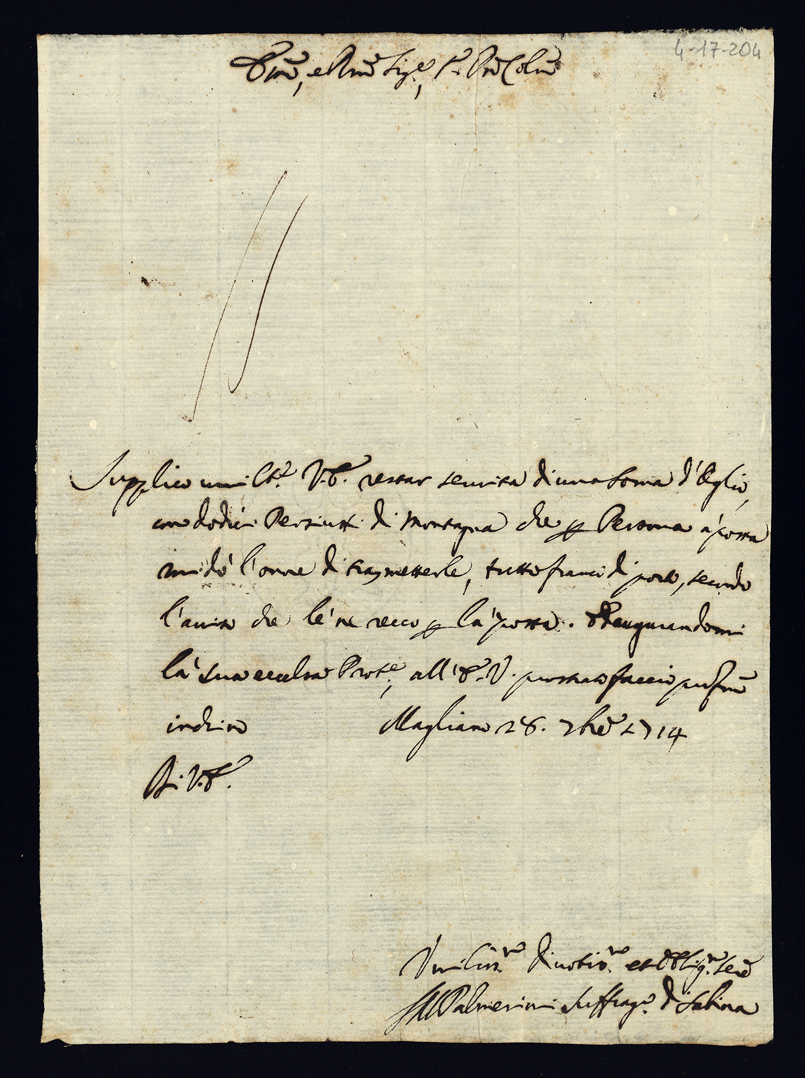 4-17-204
Emo, e Rmo Sigre, P. Pne Colmo
Supplico umilte V.E. restar servita di una soma d'oglio,
con dodici Persiutti di Montagna che p Persona à posta
mi dò l'onore di trasmetterle, tutto franco di porto, secondo
l'aviso che le ne reco p la posta. Et augurandomi
la sua eccelsa Protne, all'E.V. prostrato faccio profmo
inchino Magliano 28. 7bre 1714
Di V.E.
Umiliss.mo Divotiss.mo et Oblig.mo Serre
Palmerini Suffrago. di Sabina